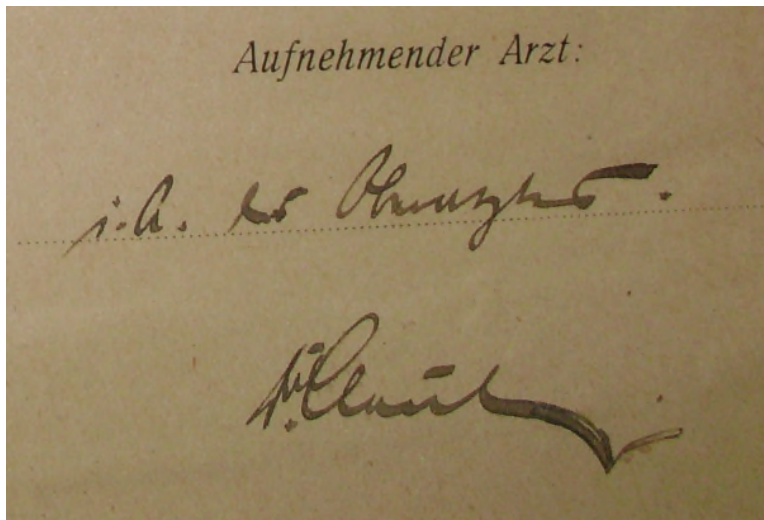 Aufnehmender Arzt:
i. A. des Oberarztes.